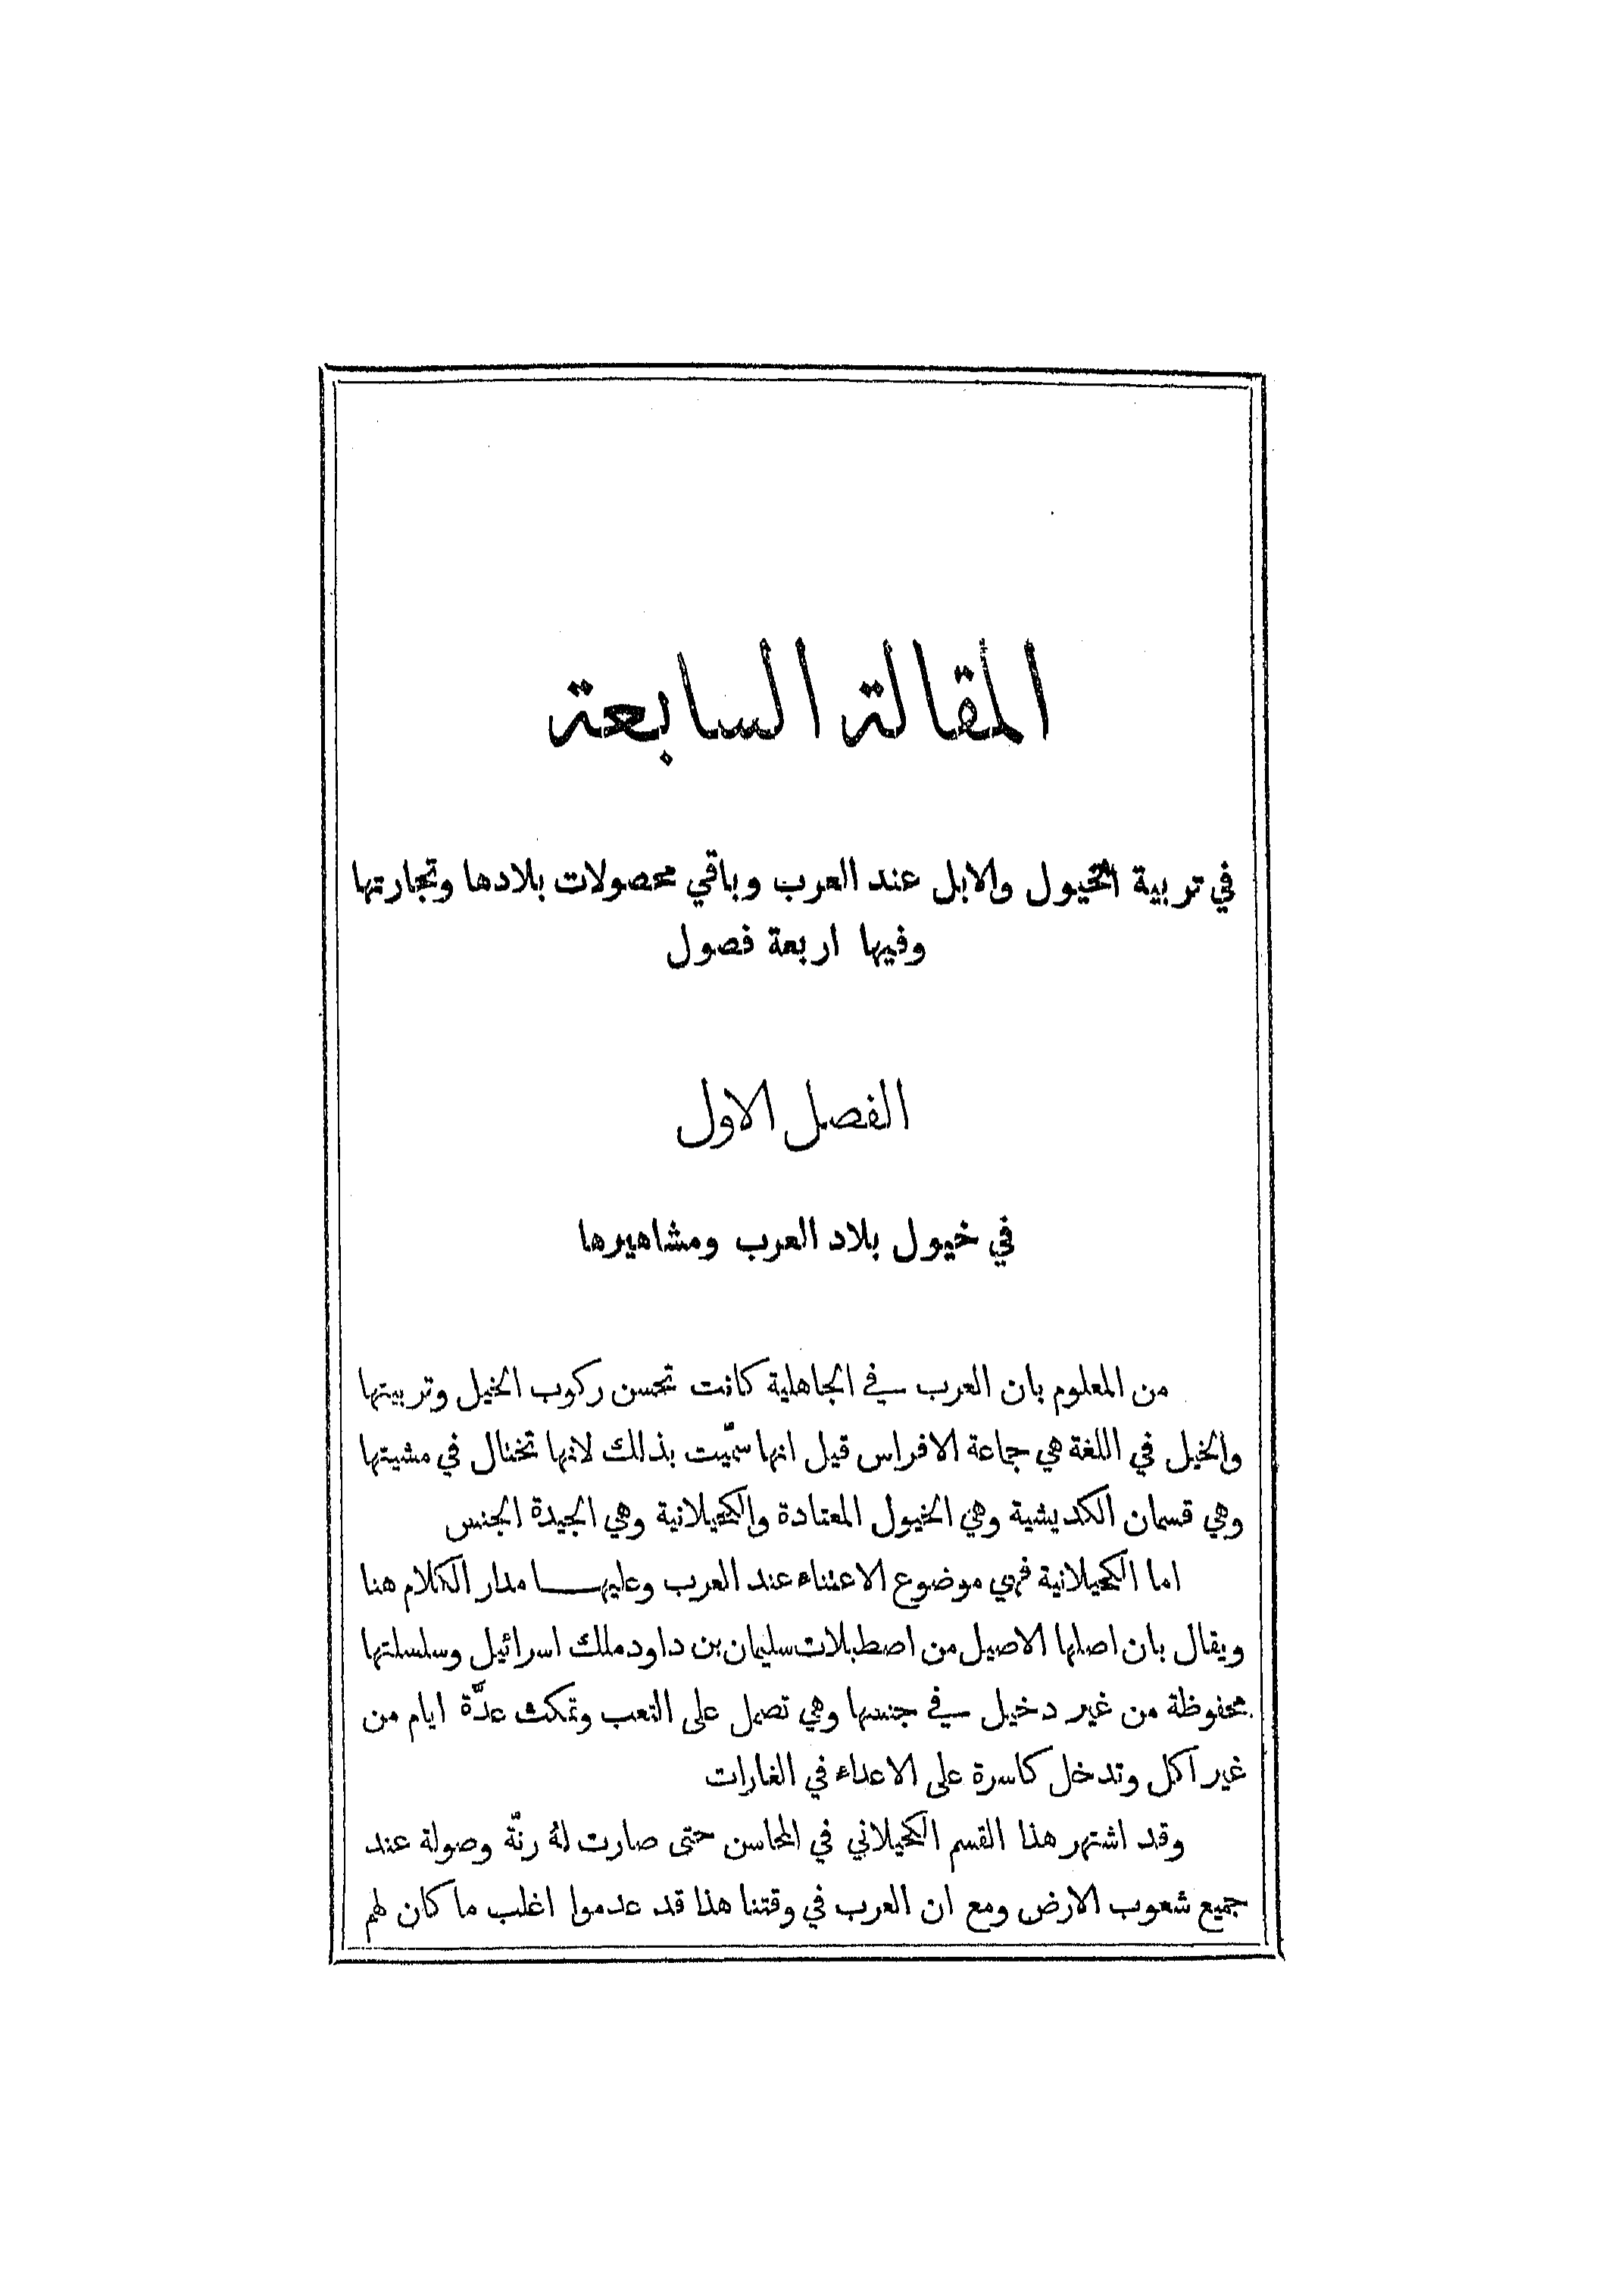 المقالة السابعة
في تربية الخيول والابل عند العرب وباقي محصولات بلادها وتجارتها
وفيها اربعة فصول
الفصل الاول
في خيول بلاد العرب ومشاهيرها
من المعلوم بان العرب في الجاهلية كانت تحسن ركوب الخيل وتربيتها
والخيل في اللغة هي جماعة الافراس قيل انها سمّيت بذلك لانها تختال في مشيتها
وهي قسمان الكديشية وهي الخيول المعتادة والكحيلانية وهي الجيدة الجنس
اما الكحيلانية فهي موضوع الاعتناء عند العرب وعليها مدار الكلام هنا
ويقال بان اصلها الاصيل من اصطبلات سليمان بن داود ملك اسرائيل وسلسلتها
محفوظة من غير دخيل في جنسها وهي تصمل على التعب وتمكث عدّة ايام من
غير اكل وتدخل كاسرة على الاعداء في الغارات
وقد اشتهر هذا القسم الكحيلاني في المحاسن حتى صارت لهُ رنّة وصولة عند
جميع شعوب الارض ومع ان العرب في وقتنا هذا قد عدموا اغلب ما كان لهم